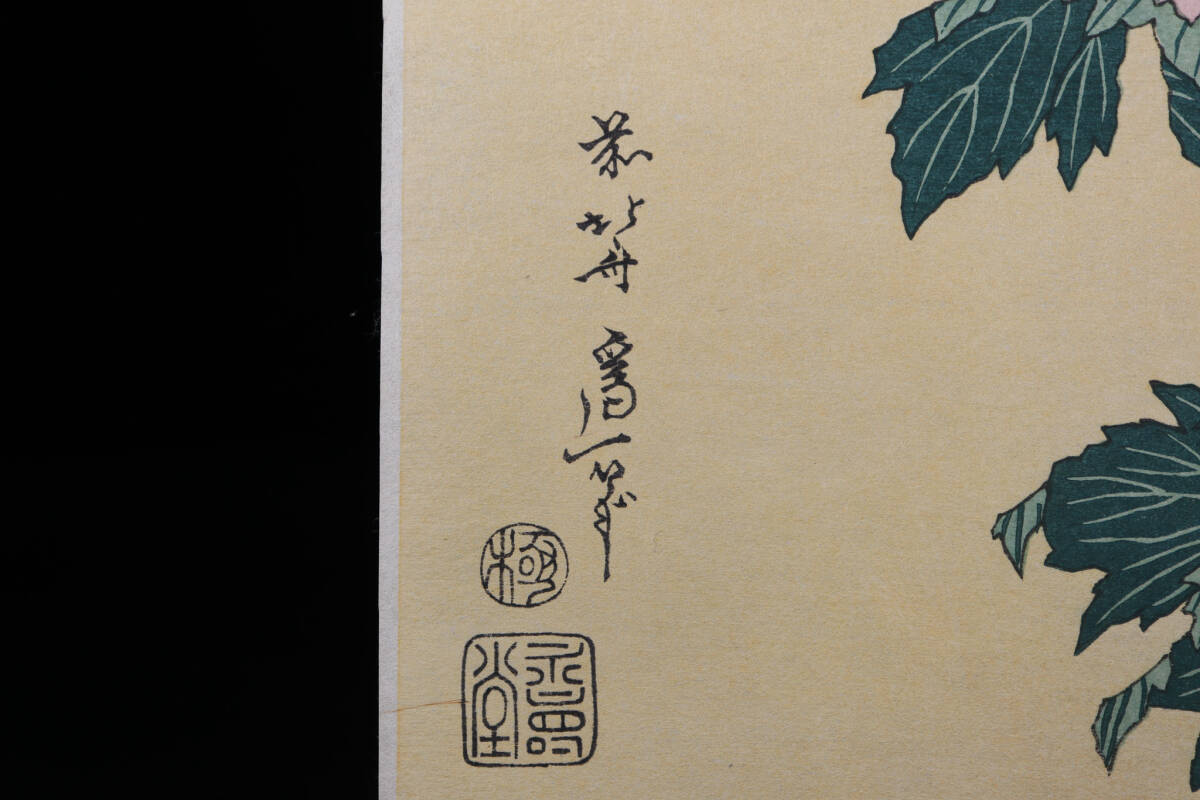 前北斎為一筆
極
永寿堂